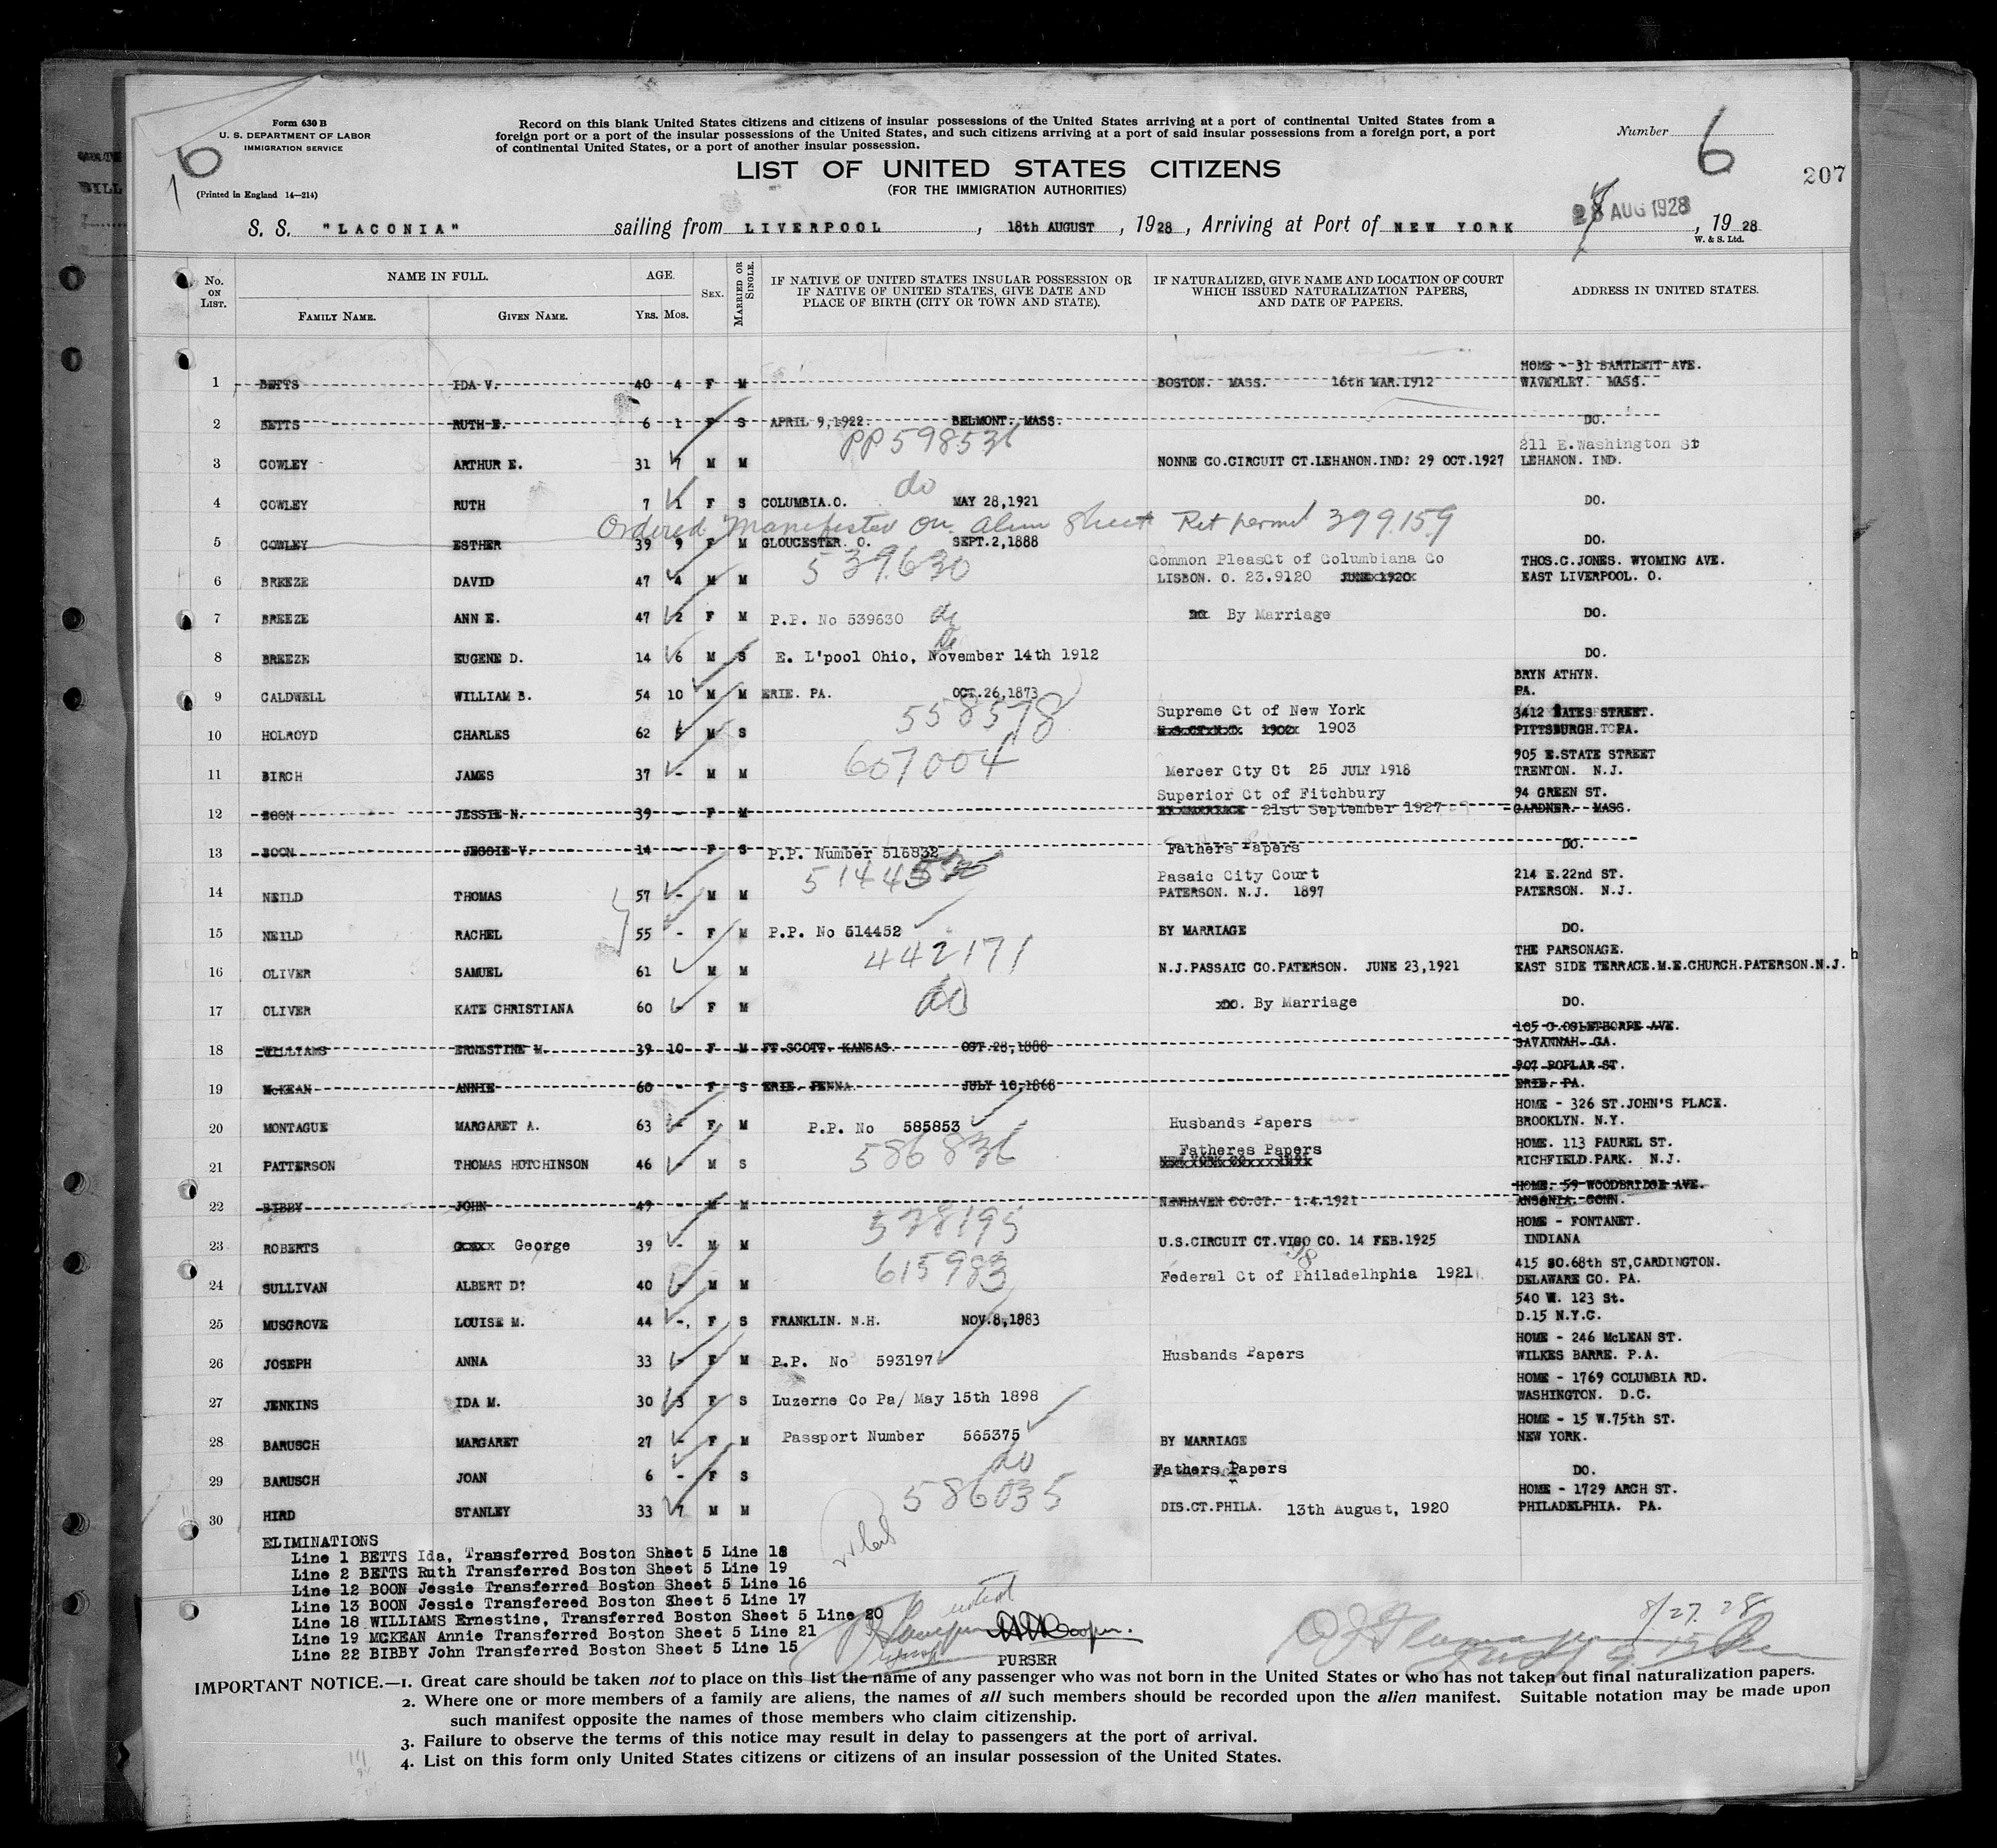 Form 630 B
U. S. DEPARTMENT OF LABOR
IMMIGRATION SERVICE
(Printed in England 14—214)
6
Record on this blank United States citizens and citizens of insular possessions of the United States arriving at a port of continental United States from a
foreign port or a port of the insular possessions of the United States, and such citizens arriving at a port of said insular possessions from a foreign port, a port
of continental United States, or a port of another insular possession.
LIST OF UNITED STATES CITIZENS
(FOR THE IMMIGRATION AUTHORITIES)
Number 6
207
S. S. "LACONIA" sailing from LIVERPOOL, 18th AUGUST, 1928, Arriving at Port of NEW YORK 28 AUG 1928, 1928
W. & S. Ltd.
No. ON LIST. NAME IN FULL. FAMILY NAME. GIVEN NAME. AGE. YRS. MOS. SEX. MARRIED OR SINGLE. IF NATIVE OF UNITED STATES INSULAR POSSESSION OR IF NATIVE OF UNITED STATES, GIVE DATE AND PLACE OF BIRTH (CITY OR TOWN AND STATE). IF NATURALIZED, GIVE NAME AND LOCATION OF COURT WHICH ISSUED NATURALIZATION PAPERS, AND DATE OF PAPERS. ADDRESS IN UNITED STATES.
HOME - 31 BARTLETT AVE.
1 BETTS IDA V. 40 4 F M BOSTON. MASS. 16th MAR.1912 WAVERLEY. MASS.
2 BETTS RUTH E. 6 1 F S APRIL 9,1922. BELMONT. MASS. DO.
PP 598536 211 E.Washington St
3 COWLEY ARTHUR E. 31 7 M M NONNE CO.CIRCUIT CT.LEHANON.IND: 29 OCT.1927 LEHANON. IND.
do
4 COWLEY RUTH 7 1 F S COLUMBIA.O. MAY 28,1921 DO.
Ordered Manifested on alien sheet Ret permit 399.159
5 COWLEY ESTHER 39 9 F M GLOUCESTER. O. SEPT.2,1888 DO.
539630 Common PleasCt of Columbiana Co THOS.C.JONES. WYOMING AVE.
6 BREEZE DAVID 47 4 M M LISBON. O. 23.9120 JUNE 1920 EAST LIVERPOOL. O.
7 BREEZE ANN E. 47 2 F M P.P. No 539630 do By Marriage DO.
do
8 BREEZE EUGENE D. 14 6 M S E. L'pool Ohio, November 14th 1912 DO.
BRYN ATHYN.
9 CALDWELL WILLIAM B. 54 10 M M ERIE. PA. OCT.26,1873 PA.
558578 Supreme Ct of New York 3412 BATES STREET.
10 HOLROYD CHARLES 62 M S 1903 PITTSBURGH. PA.
607004 905 E.STATE STREET
11 BIRCH JAMES 37 - M M Mercer Cty Ct 25 JULY 1918 TRENTON. N.J.
Superior Ct of Fitchbury 94 GREEN ST.
12 BOON JESSIE N. 39 - F M 21st September 1927 GARDNER. MASS.
13 BOON JESSIE V. 14 - F S P.P. Number 516832 Fathers Papers DO.
Pasaic City Court 214 E.22nd ST.
14 NEILD THOMAS 57 - M M PATERSON. N.J. 1897 PATERSON. N.J.
15 NEILD RACHEL 55 - F M P.P. No 514452 BY MARRIAGE DO.
442171 THE PARSONAGE.
16 OLIVER SAMUEL 61 M M N.J.PASSAIC CO.PATERSON. JUNE 23,1921 EAST SIDE TERRACE.M.E.CHURCH.PATERSON.N.J.
17 OLIVER KATE CHRISTIANA 60 - F M do By Marriage DO.
105 O.OGLETHORPE AVE.
18 WILLIAMS ERNESTINE M. 39 10 F M FT.SCOTT. KANSAS. OCT.28,1888 SAVANNAH. GA.
907 POPLAR ST.
19 McKEAN ANNIE 60 - F S ERIE. PENNA. JULY 10,1868 ERIE. PA.
HOME - 326 ST.JOHN'S PLACE.
20 MONTAGUE MARGARET A. 63 - F M P.P. No 585853 Husbands Papers BROOKLYN. N.Y.
586836 Fatheres Papers HOME. 113 PAUREL ST.
21 PATTERSON THOMAS HUTCHINSON 46 - M S RICHFIELD.PARK. N.J.
HOME. 59 WOODBRIDGE AVE.
22 BIBBY JOHN 49 - M M NEWHAVEN CO.CT. 1.4.1921 ANSONIA. CONN.
578195 HOME - FONTANET.
23 ROBERTS George 39 - M M U.S.CIRCUIT CT.VIGO CO. 14 FEB.1925 INDIANA
615983 415 SO.68th ST,CARDINGTON.
24 SULLIVAN ALBERT D? 40 - M M Federal Ct of Philadelhphia 1921 DELAWARE CO. PA.
540 W. 123 St.
25 MUSGROVE LOUISE M. 44 -, F S FRANKLIN. N.H. NOV.8,1883 D.15 N.Y.C.
HOME - 246 McLEAN ST.
26 JOSEPH ANNA 33 - F M P.P. No 593197 Husbands Papers WILKES BARRE. P.A.
HOME - 1769 COLUMBIA RD.
27 JENKINS IDA M. 30 3 F S Luzerne Co Pa/ May 15th 1898 WASHINGTON. D.C.
HOME - 15 W.75th ST.
28 BARUSCH MARGARET 27 - F M Passport Number 565375 BY MARRIAGE NEW YORK.
29 BARUSCH JOAN 6 - F S do Fathers Papers DO.
586035 HOME - 1729 ARCH ST.
30 HIRD STANLEY 33 7 M M DIS.CT.PHILA. 13th August, 1920 PHILADELPHIA. PA.
ELIMINATIONS
Line 1 BETTS Ida, Transferred Boston Sheet 5 Line 18
Line 2 BETTS Ruth Transferred Boston Sheet 5 Line 19
Line 12 BOON Jessie Transferred Boston Sheet 5 Line 16
Line 13 BOON Jessie Transfereed Boston Sheet 5 Line 17
Line 18 WILLIAMS Ernestine, Transferred Boston Sheet 5 Line 20
Line 19 MCKEAN Annie Transferred Boston Sheet 5 Line 21
Line 22 BIBBY John Transferred Boston Sheet 5 Line 15
8/27.28
PURSER
IMPORTANT NOTICE.—1. Great care should be taken not to place on this list the name of any passenger who was not born in the United States or who has not taken out final naturalization papers.
2. Where one or more members of a family are aliens, the names of all such members should be recorded upon the alien manifest. Suitable notation may be made upon
such manifest opposite the names of those members who claim citizenship.
3. Failure to observe the terms of this notice may result in delay to passengers at the port of arrival.
4. List on this form only United States citizens or citizens of an insular possession of the United States.